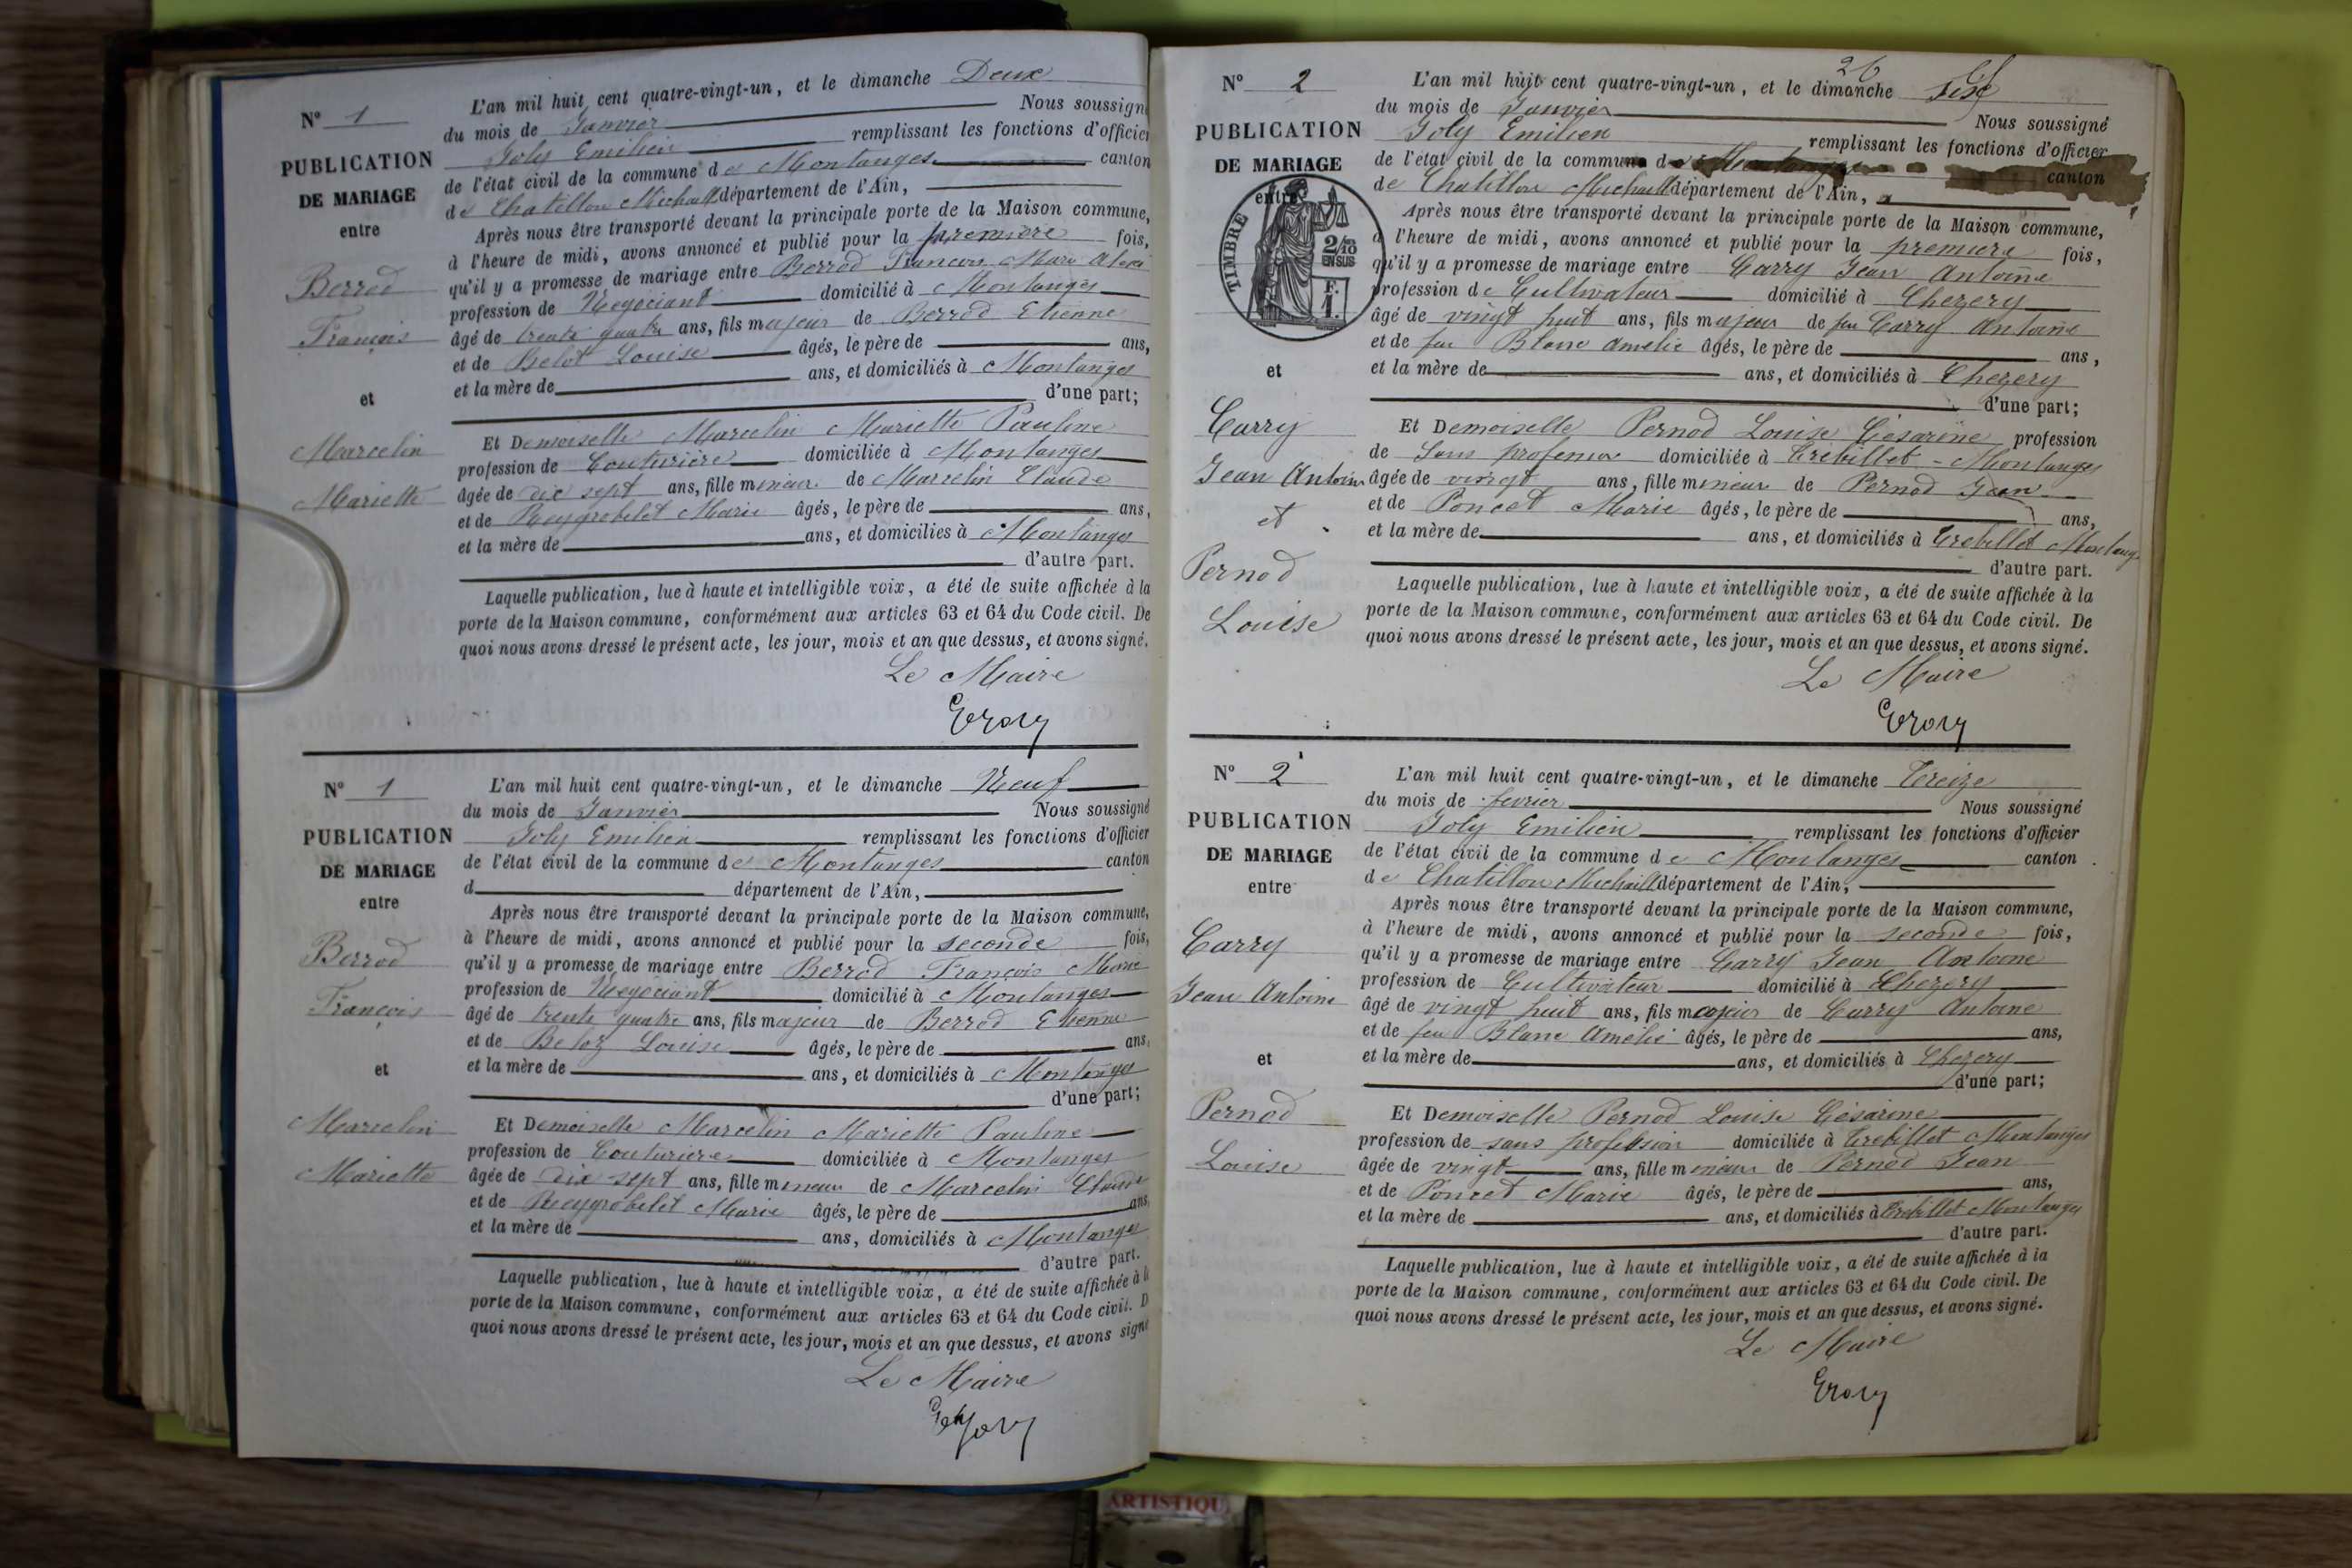 N° 1
PUBLICATION
DE MARIAGE
entre
Berrod
François
et
Marcelin
Mariette
L'an mil huit cent quatre-vingt-un, et le dimanche Deux
du mois de Janvier Nous soussigné
Joly Emilien remplissant les fonctions d'officier
de l'état civil de la commune de Montanges canton
de Chatillon Michaille département de l'Ain,
Après nous être transporté devant la principale porte de la Maison commune,
à l'heure de midi, avons annoncé et publié pour la première fois,
qu'il y a promesse de mariage entre Berrod François Marie
profession de Negociant domicilié à Montanges
âgé de trente quatre ans, fils majeur de Berrod Etienne
et de Belot Louise âgés, le père de ans,
et la mère de ans, et domiciliés à Montanges
d'une part;
Et Demoiselle Marcelin Mariette Pauline
profession de Couturière domiciliée à Montanges
âgée de dix sept ans, fille mineure de Marcelin Claude
et de Reygrobelet Marie âgés, le père de ans,
et la mère de ans, et domicilies à Montanges
d'autre part.
Laquelle publication, lue à haute et intelligible voix, a été de suite affichée à la
porte de la Maison commune, conformément aux articles 63 et 64 du Code civil. De
quoi nous avons dressé le présent acte, les jour, mois et an que dessus, et avons signé.
Le Maire
N° 1
PUBLICATION
DE MARIAGE
entre
Berrod
François
et
Marcelin
Mariette
L'an mil huit cent quatre-vingt-un, et le dimanche Neuf
du mois de Janvier Nous soussigné
Joly Emilien remplissant les fonctions d'officier
de l'état civil de la commune de Montanges canton
d département de l'Ain,
Après nous être transporté devant la principale porte de la Maison commune,
à l'heure de midi, avons annoncé et publié pour la seconde fois,
qu'il y a promesse de mariage entre Berrod François Marie
profession de Negociant domicilié à Montanges
âgé de trente quatre ans, fils majeur de Berrod Etienne
et de Beloz Louise âgés, le père de ans,
et la mère de ans, et domiciliés à Montanges
d'une part;
Et Demoiselle Marcelin Mariette Pauline
profession de Couturiere domiciliée à Montanges
âgée de dix sept ans, fille mineure de Marcelin Claude
et de Reygrobelet Marie âgés, le père de ans,
et la mère de ans, domiciliés à Montanges
d'autre part.
Laquelle publication, lue à haute et intelligible voix, a été de suite affichée à la
porte de la Maison commune, conformément aux articles 63 et 64 du Code civil. D
quoi nous avons dressé le présent acte, les jour, mois et an que dessus, et avons signé
Le Maire
26
N° 2
PUBLICATION
DE MARIAGE
entre
TIMBRE
2/10
EN SUS
F.
1.
et
Carry
Jean Antoine
et
Pernod
Louise
L'an mil huit cent quatre-vingt-un, et le dimanche
du mois de Janvier Nous soussigné
Joly Emilien remplissant les fonctions d'officier
de l'état civil de la commune de Montanges canton
de Chatillon Michaille département de l'Ain,
Après nous être transporté devant la principale porte de la Maison commune,
à l'heure de midi, avons annoncé et publié pour la premiere fois,
qu'il y a promesse de mariage entre Carry Jean Antoine
profession de Cultivateur domicilié à Chezery
âgé de vingt huit ans, fils majeur de feu Carry Antoine
et de feu Blanc Amelie âgés, le père de ans,
et la mère de ans, et domiciliés à Chezery
d'une part;
Et Demoiselle Pernod Louise Césarine profession
de Sans profession domiciliée à Trebillet - Montanges
âgée de vingt ans, fille mineure de Pernod Jean
et de Poncet Marie âgés, le père de ans,
et la mère de ans, et domiciliés à Trebillet Montanges
d'autre part.
Laquelle publication, lue à haute et intelligible voix, a été de suite affichée à la
porte de la Maison commune, conformément aux articles 63 et 64 du Code civil. De
quoi nous avons dressé le présent acte, les jour, mois et an que dessus, et avons signé.
Le Maire
N° 2
PUBLICATION
DE MARIAGE
entre
Carry
Jean Antoine
et
Pernod
Louise
L'an mil huit cent quatre-vingt-un, et le dimanche Treize
du mois de fevrier Nous soussigné
Joly Emilien remplissant les fonctions d'officier
de l'état civil de la commune de Montanges canton
de Chatillon Michaille département de l'Ain,
Après nous être transporté devant la principale porte de la Maison commune,
à l'heure de midi, avons annoncé et publié pour la seconde fois,
qu'il y a promesse de mariage entre Carry Jean Antoine
profession de Cultivateur domicilié à Chezery
âgé de vingt huit ans, fils majeur de Carry Antoine
et de feu Blanc Amélie âgés, le père de ans,
et la mère de ans, et domiciliés à Chezery
d'une part;
Et Demoiselle Pernod Louise Césarine
profession de sans profession domiciliée à Trebillet Montanges
âgée de vingt ans, fille mineure de Pernod Jean
et de Poncet Marie âgés, le père de ans,
et la mère de ans, et domiciliés à Trebillet Montanges
d'autre part.
Laquelle publication, lue à haute et intelligible voix, a été de suite affichée à la
porte de la Maison commune, conformément aux articles 63 et 64 du Code civil. De
quoi nous avons dressé le présent acte, les jour, mois et an que dessus, et avons signé.
Le Maire
ARTISTIQU